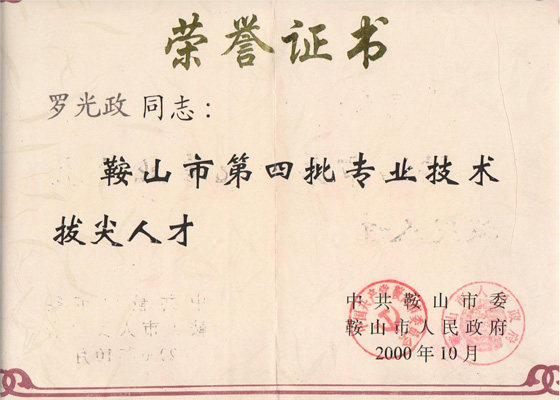 荣誉证书
罗光政 同志：
鞍山市第四批专业技术
拔尖人才
中共鞍山市委
鞍山市人民政府
2000年10月